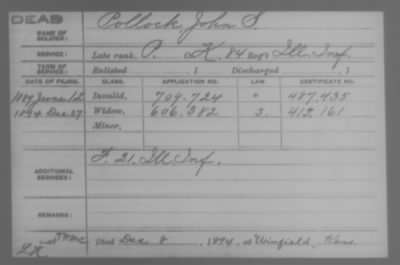 DEAD
NAME OF SOLDIER: Pollock, John S.
SERVICE: Late rank, P. Co K, 84 Reg't Ill. Inf.
TERM OF SERVICE: Enlisted , 1 Discharged , 1
DATE OF FILING. CLASS. APPLICATION NO. LAW. CERTIFICATE NO.
1889 June 12 Invalid, 709.724 " 487.435
1894 Dec 27 Widow, 606.382 3. 413.161
Minor,
ADDITIONAL SERVICES: F. 21. Ill. Inf.
REMARKS:
Died Dec 8, 1894, at Winfield, Kans